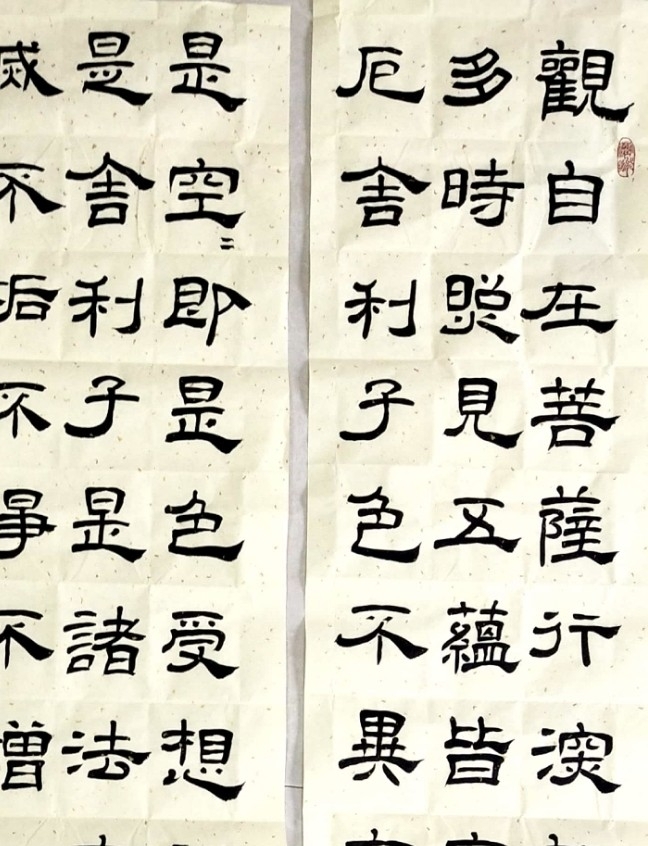 觀自在菩薩行深
多時照見五蘊皆
厄舍利子色不異
是空〻即是色受想
是舍利子是諸法
滅不垢不淨不增